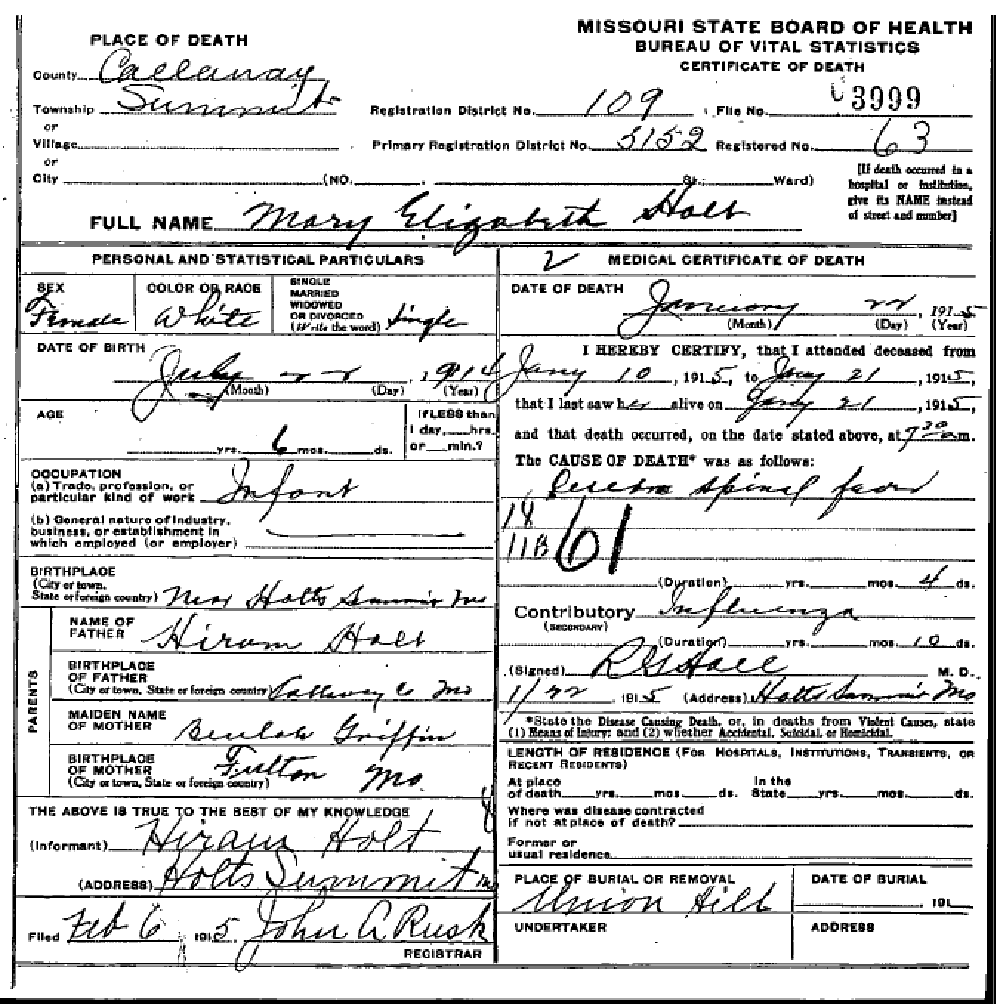 MISSOURI STATE BOARD OF HEALTH
BUREAU OF VITAL STATISTICS
CERTIFICATE OF DEATH
PLACE OF DEATH
County Callaway
Township Summit
or
Village
or
City (NO. St.; Ward)
Registration District No. 109 File No. 3999
Primary Registration District No. 5152 Registered No. 63
[If death occurred in a
hospital or institution,
give its NAME instead
of street and number]
FULL NAME Mary Elizabeth Holt
PERSONAL AND STATISTICAL PARTICULARS
SEX
Female
COLOR OR RACE
White
SINGLE
MARRIED
WIDOWED
OR DIVORCED
(Write the word) Single
DATE OF BIRTH
July 22, 1914
(Month) (Day) (Year)
AGE
yrs. 6 mos. ds.
If LESS than
1 day, hrs.
or min.?
OCCUPATION
(a) Trade, profession, or
particular kind of work Infant
(b) General nature of industry,
business, or establishment in
which employed (or employer)
BIRTHPLACE
(City or town,
State or foreign country) Near Holts Summit Mo
PARENTS
NAME OF
FATHER Hiram Holt
BIRTHPLACE
OF FATHER
(City or town, State or foreign country) Callaway Co Mo
MAIDEN NAME
OF MOTHER Beulah Griffin
BIRTHPLACE
OF MOTHER
(City or town, State or foreign country) Fulton Mo.
THE ABOVE IS TRUE TO THE BEST OF MY KNOWLEDGE
(Informant) Hiram Holt
(ADDRESS) Holts Summit Mo
Filed Feb 6, 1915 John A. Rusk
REGISTRAR
2 MEDICAL CERTIFICATE OF DEATH
DATE OF DEATH
January 22, 1915
(Month) (Day) (Year)
I HEREBY CERTIFY, that I attended deceased from
Jany 10, 1915, to Jany 21, 1915,
that I last saw her alive on Jany 21, 1915,
and that death occurred, on the date stated above, at 7 30 a.m.
The CAUSE OF DEATH* was as follows:
spinal
18
11B 61
(Duration) yrs. mos. 4 ds.
Contributory Influenza
(SECONDARY)
(Duration) yrs. mos. 10 ds.
(Signed) M. D.
1/22 1915 (Address) Holts Summit Mo
*State the Disease Causing Death, or, in deaths from Violent Causes, state
(1) Means of Injury; and (2) whether Accidental, Suicidal, or Homicidal.
LENGTH OF RESIDENCE (FOR HOSPITALS, INSTITUTIONS, TRANSIENTS, OR
RECENT RESIDENTS)
At place In the
of death yrs. mos. ds. State yrs. mos. ds.
Where was disease contracted
if not at place of death?
Former or
usual residence
PLACE OF BURIAL OR REMOVAL
Union Hill
DATE OF BURIAL
191
UNDERTAKER
ADDRESS